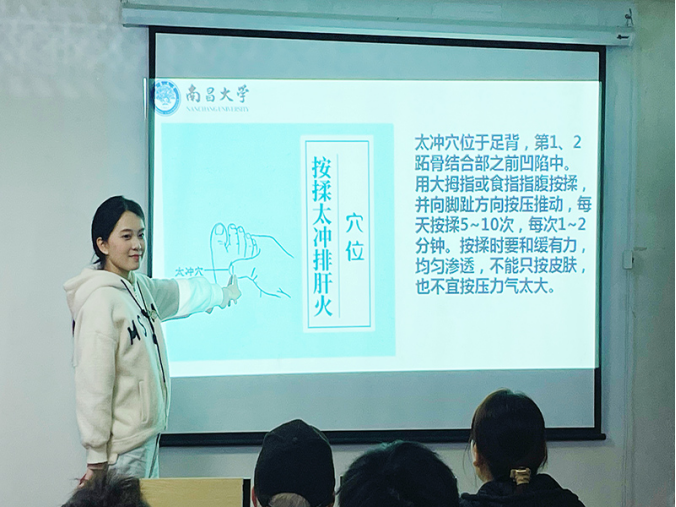 南昌大学
NANCHANG UNIVERSITY
太冲穴
穴位
按揉太冲排肝火
太冲穴位于足背，第1、2
跖骨结合部之前凹陷中。
用大拇指或食指指腹按揉，
并向脚趾方向按压推动，每
天按揉5~10次，每次1~2
分钟。按揉时要和缓有力，
均匀渗透，不能只按皮肤，
也不宜按压力气太大。